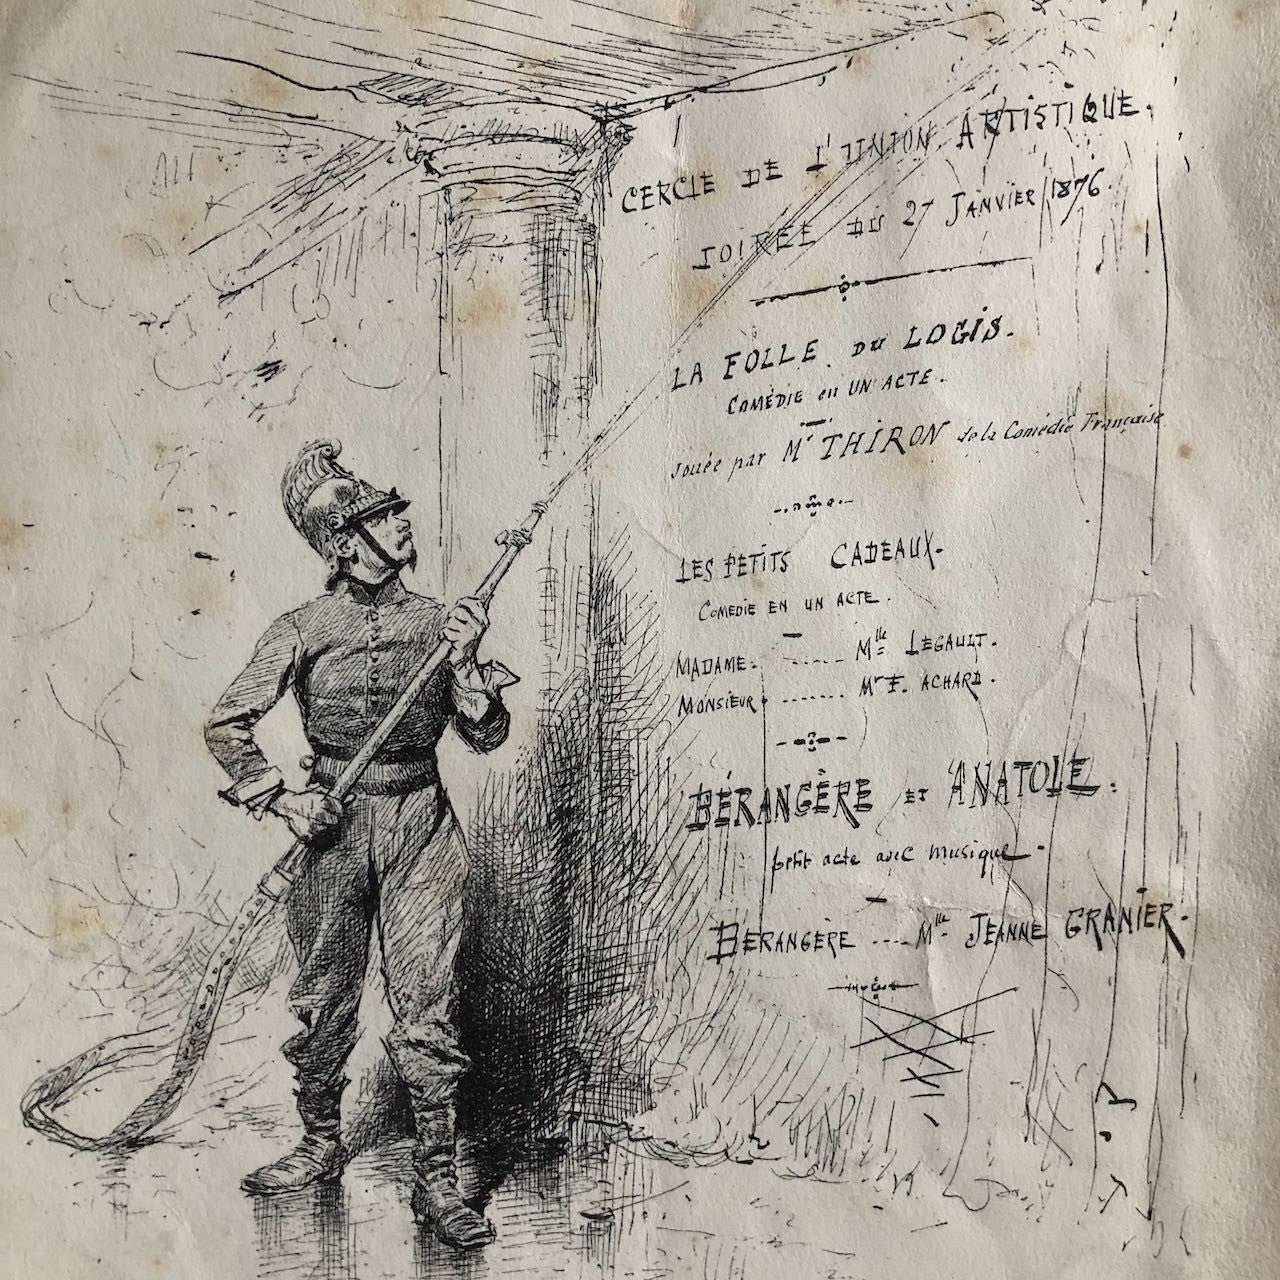 CERCLE DE L'UNION ARTISTIQUE.
SOIRÉE DU 27 JANVIER 1876.
LA FOLLE DU LOGIS.
COMÉDIE en UN ACTE.
Jouée par Mr THIRON de la Comédie Française
LES PETITS CADEAUX.
COMEDIE EN UN ACTE.
MADAME. ...... Mlle LEGAULT.
MONSIEUR. ...... Mr F. ACHARD.
BÉRANGÈRE ET ANATOLE.
petit acte avec musique.
BÉRANGÈRE .... Mlle JEANNE GRANIER.